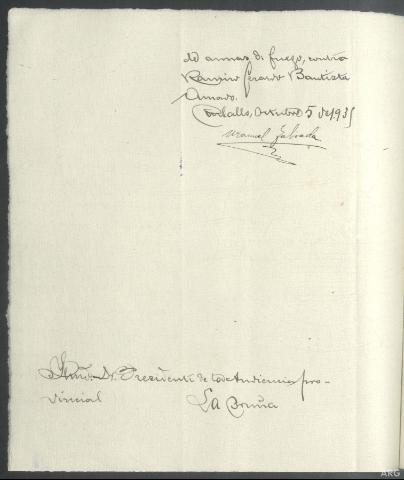 de armas de fuego, contra
Ramiro Gerardo Bautista
Amado.
Carballo, Octubre 5 de 1935
Manuel
Ilmo. Sr. Presidente de la Audiencia pro-
vincial
La Coruña
ARG